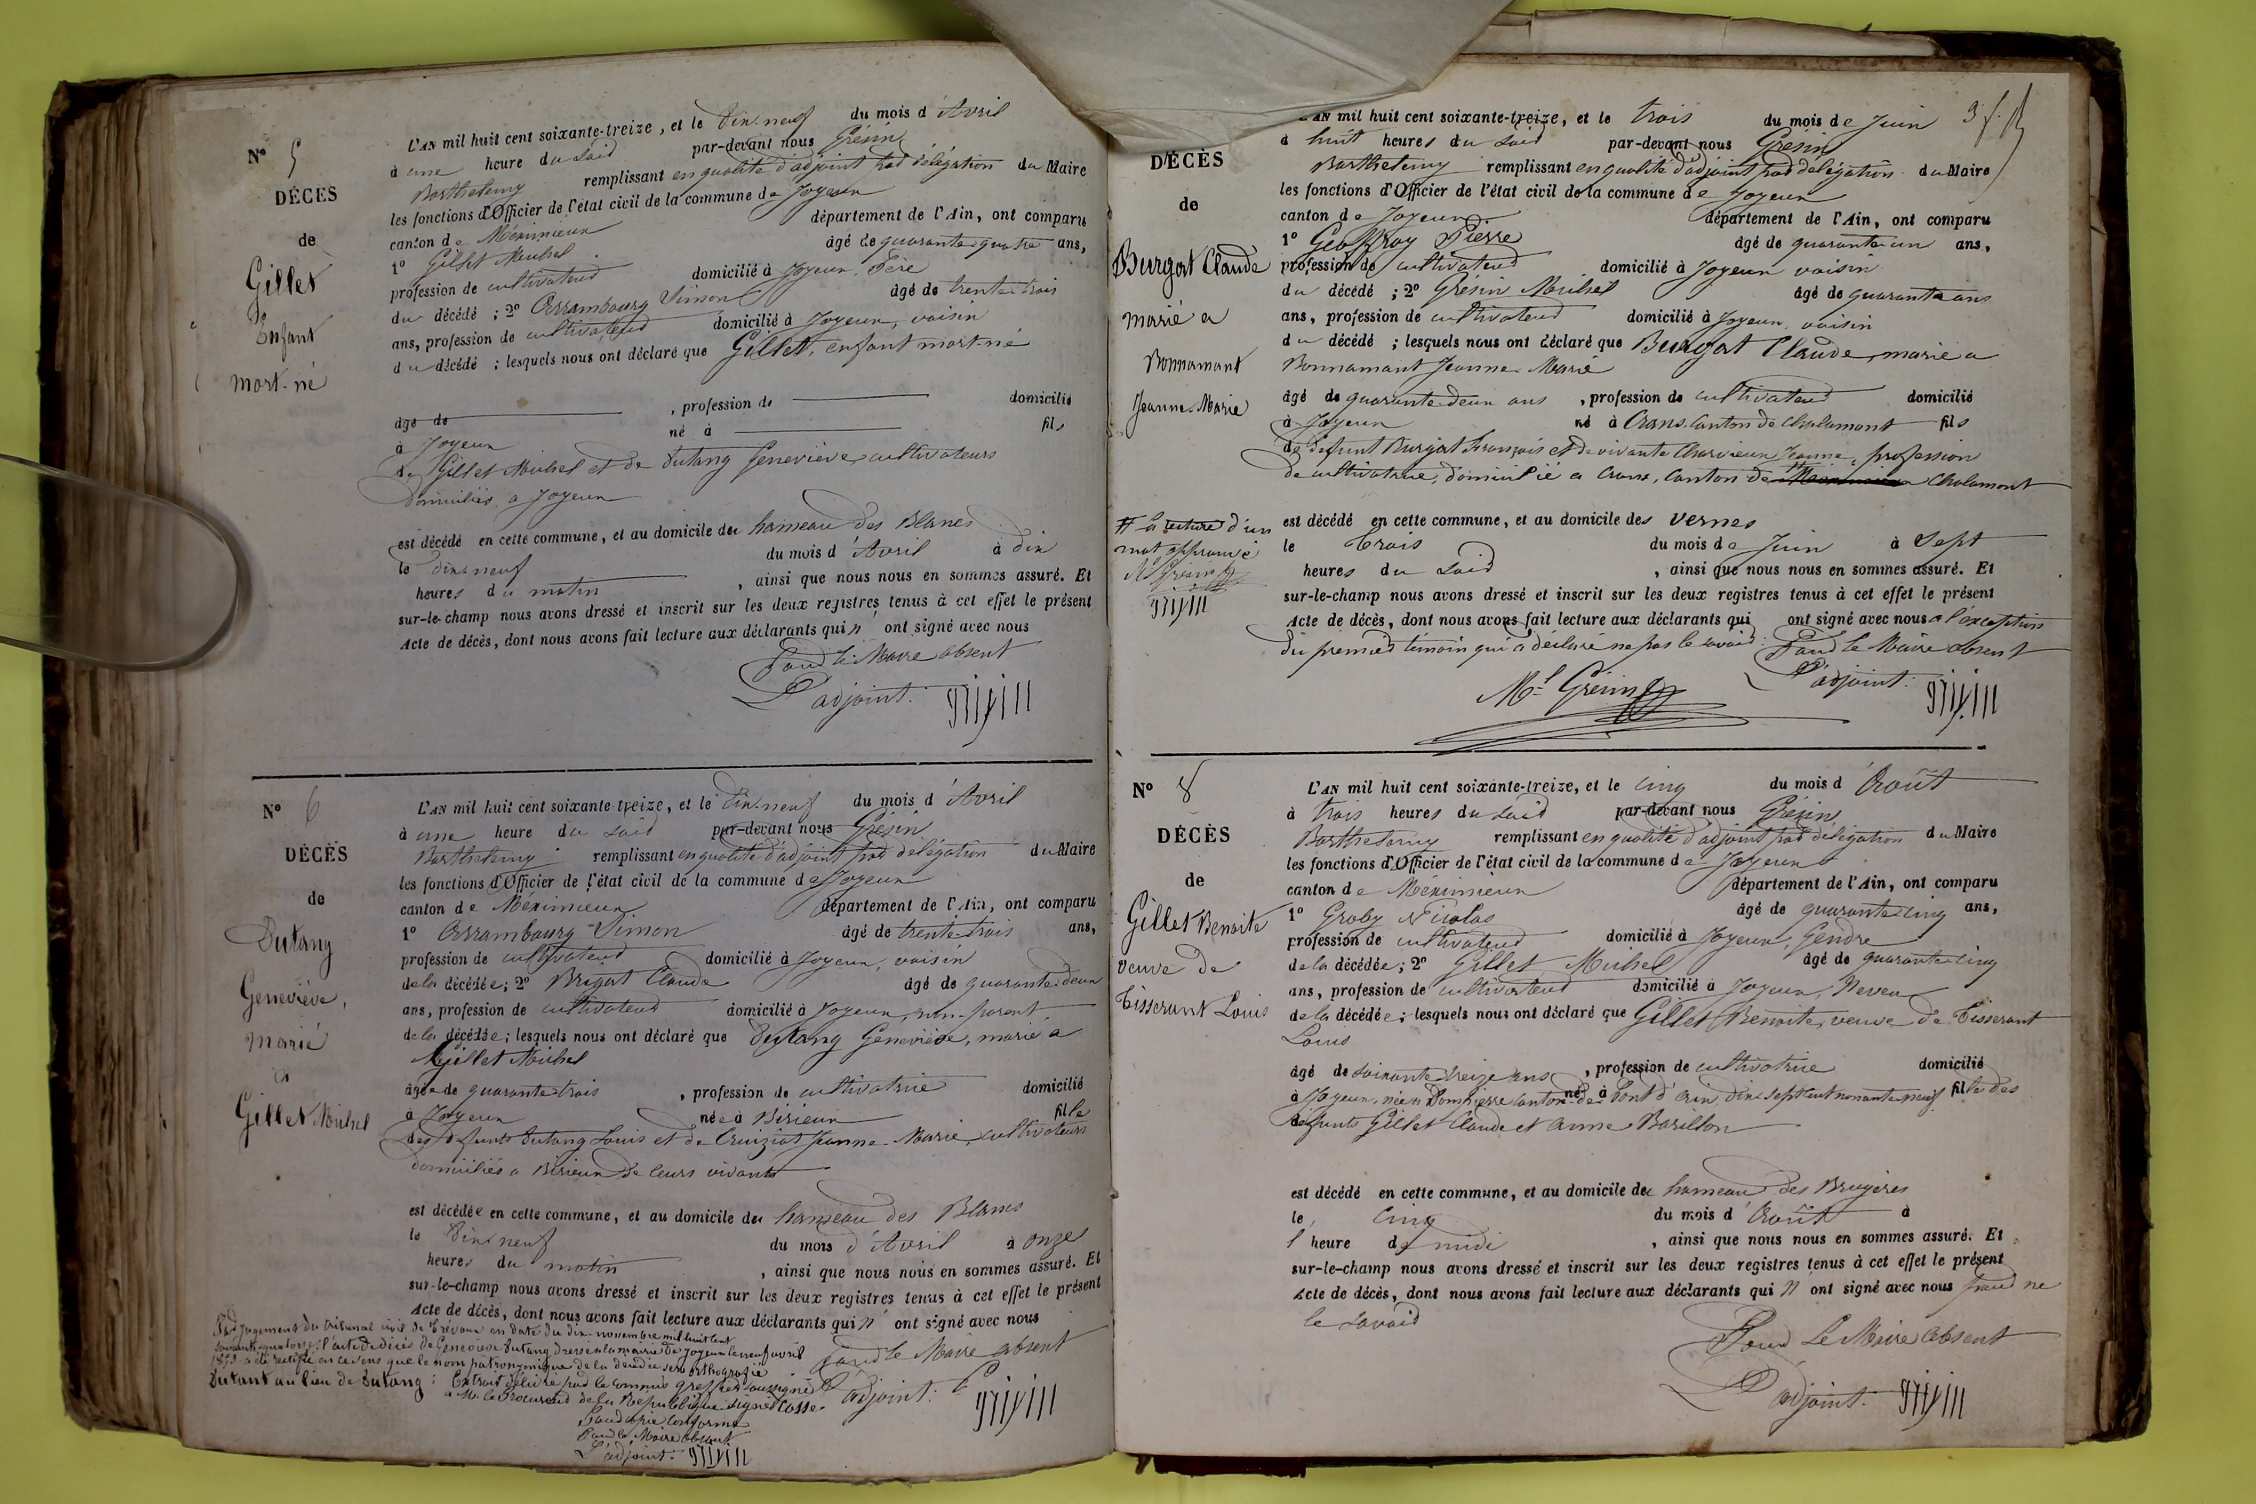 N° 5
DÉCÈS
de
Gillet
Enfant
mort-né
L'AN mil huit cent soixante-treize, et le dix-neuf du mois d'Avril
à une heure du soir par-devant nous Grésin
Barthelemy remplissant en qualité d'adjoint par délégation du Maire
les fonctions d'Officier de l'état civil de la commune de Joyeux
canton de Méximieux département de l'Ain, ont comparu
1° Gillet Michel âgé de quarante-quatre ans,
profession de cultivateur domicilié à Joyeux, Père
du décédé ; 2° Arrambourg Simon âgé de trente-trois
ans, profession de cultivateur domicilié à Joyeux, voisin
du décédé ; lesquels nous ont déclaré que Gillet, enfant mort-né
âgé de , profession de domicilié
à Joyeux né à fils
de Gillet Michel et de Dutang Geneviève cultivateurs
domiciliés a Joyeux
est décédé en cette commune, et au domicile du hameau des Blancs
le dix neuf du mois d'Avril à dix
heures du matin , ainsi que nous nous en sommes assuré. Et
sur-le-champ nous avons dressé et inscrit sur les deux registres tenus à cet effet le présent
Acte de décès, dont nous avons fait lecture aux déclarants qui n'ont signé avec nous
Pour le Maire absent
L'adjoint.
N° 6
DÉCÈS
de
Dutang
Geneviève,
marié
a
Gillet Michel
L'AN mil huit cent soixante-treize, et le dix-neuf du mois d'Avril
à une heure du soir par-devant nous Grésin
Barthelemy remplissant en qualité d'adjoint par délégation du Maire
les fonctions d'Officier de l'état civil de la commune de Joyeux
canton de Méximieux département de l'Ain, ont comparu
1° Arrambourg Simon âgé de trente-trois ans,
profession de cultivateur domicilié à Joyeux, voisin
de la décédée ; 2° Brugat Claude âgé de quarante-deux
ans, profession de cultivateur domicilié à Joyeux, non-parent
de la décédée ; lesquels nous ont déclaré que Dutang Geneviève, marié a
Gillet Michel
âgée de quarante-trois , profession de cultivatrice domicilié
à Joyeux née à Birieux fille
des défunts Dutang Louis et de Cruiziat Jeanne-Marie, cultivateurs
domiciliés a Birieux de leurs vivants
est décédée en cette commune, et au domicile du hameau des Blancs
le dix neuf du mois d'Avril à onze
heures du matin , ainsi que nous nous en sommes assuré. Et
sur-le-champ nous avons dressé et inscrit sur les deux registres tenus à cet effet le présent
Acte de décès, dont nous avons fait lecture aux déclarants qui n'ont signé avec nous
Pour le Maire absent
L'adjoint.
Par jugement du tribunal civil de Trévoux en date du dix-novembre mil huit cent
soixante-quatorze, l'acte de décès de Geneviève Dutang dressé a la mairie de Joyeux le neuf avril
1873 a été rectifié en ce sens que le nom patronymique de la décédée sera orthographié
Dutant au lieu de Dutang : Extrait délivré par le commis greffier soussigné
a Mr. le Procureur de la République signé Cosse.
Pour copie conforme
Pour le Maire absent
L'adjoint.
3 f.
DÉCÈS
de
Burgat Claude
marié a
Bonnamant
Jeanne-Marie
la rature d'un
mot approuvé
M. Grésin
L'AN mil huit cent soixante-treize, et le trois du mois de Juin
à huit heures du soir par-devant nous Grésin
Barthelemy remplissant en qualité d'adjoint par délégation du Maire
les fonctions d'Officier de l'état civil de la commune de Joyeux
canton de Joyeux département de l'Ain, ont comparu
1° Geoffray Pierre âgé de quarante-un ans,
profession de cultivateur domicilié à Joyeux voisin
du décédé ; 2° Grésin Michel âgé de quarante ans
ans, profession de cultivateur domicilié à Joyeux, voisin
du décédé ; lesquels nous ont déclaré que Burgat Claude, marié a
Bonnamant Jeanne-Marie
âgé de quarante-deux ans , profession de cultivateur domicilié
à Joyeux né à Crans, Canton de Chalamont fils
de défunt Burgat François et de vivante Charvieux Jeanne, profession
de cultivatrice, domicilié a Crans, Canton de Chalamont
est décédé en cette commune, et au domicile des Vernes
le trois du mois de Juin à Sept
heures du soir , ainsi que nous nous en sommes assuré. Et
sur-le-champ nous avons dressé et inscrit sur les deux registres tenus à cet effet le présent
Acte de décès, dont nous avons fait lecture aux déclarants qui ont signé avec nous a l'exception
du premier témoin qui a déclaré ne pas le savoir. Pour le Maire absent
L'adjoint.
Ml. Grésin
N° 8
DÉCÈS
de
Gillet Benoite
veuve de
Tisserant Louis
L'AN mil huit cent soixante-treize, et le cinq du mois d'Août
à trois heures du soir par-devant nous Grésin
Barthelemy remplissant en qualité d'adjoint par délégation du Maire
les fonctions d'Officier de l'état civil de la commune de Joyeux
canton de Méximieux département de l'Ain, ont comparu
1° Groby Nicolas âgé de quarante-cinq ans,
profession de cultivateur domicilié à Joyeux, Gendre
de la décédée ; 2° Gillet Michel âgé de quarante-cinq
ans, profession de cultivateur domicilié à Joyeux, Neveu
de la décédée ; lesquels nous ont déclaré que Gillet Benoite, veuve de Tisserant
Louis
âgé de soixante-treize ans , profession de cultivatrice domicilié
à Joyeux, née a Dompierre canton de né à Pont d'Ain, dix-sept cent nonante-neuf fille des
défunts Gillet Claude et Anne Barillon
est décédé en cette commune, et au domicile du hameau des Bruyères
le cinq du mois d'Août à
l'heure de midi , ainsi que nous nous en sommes assuré. Et
sur-le-champ nous avons dressé et inscrit sur les deux registres tenus à cet effet le présent
Acte de décès, dont nous avons fait lecture aux déclarants qui n'ont signé avec nous pour ne
le savoir
Pour Le Maire Absent
L'adjoint.